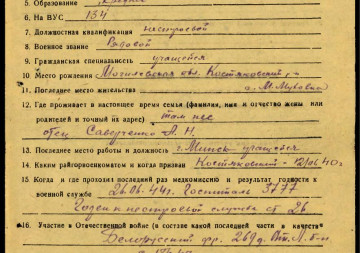 5. Образование
6. На ВУС 134
7. Должностная квалификация нестроевой
8. Военное звание Рядовой
9. Гражданская специальность учащегося
10 Место рождения Могилевская обл. Костяковский
11. Последнее место жительства д. М.
12. Где проживает в настоящее время семья (фамилия, имя и отчество жены или
родителей и точный их адрес) там нес
отец Савдученко А. Н.
13. Последнее место работы и должность г. Минск учащегося
14. Каким райгорвоенкоматом и когда призван Костяковский - 12/06 40г
15. Когда и где проходил последний раз медкомиссию и результат годности к
военной службе 26.06.44г. Госпиталь 3777
Годен к нестроевой службе ст 26
16. Участие в Отечественной войне (в составе какой последней части и в качестве
Белорусский фр. 269 б-н